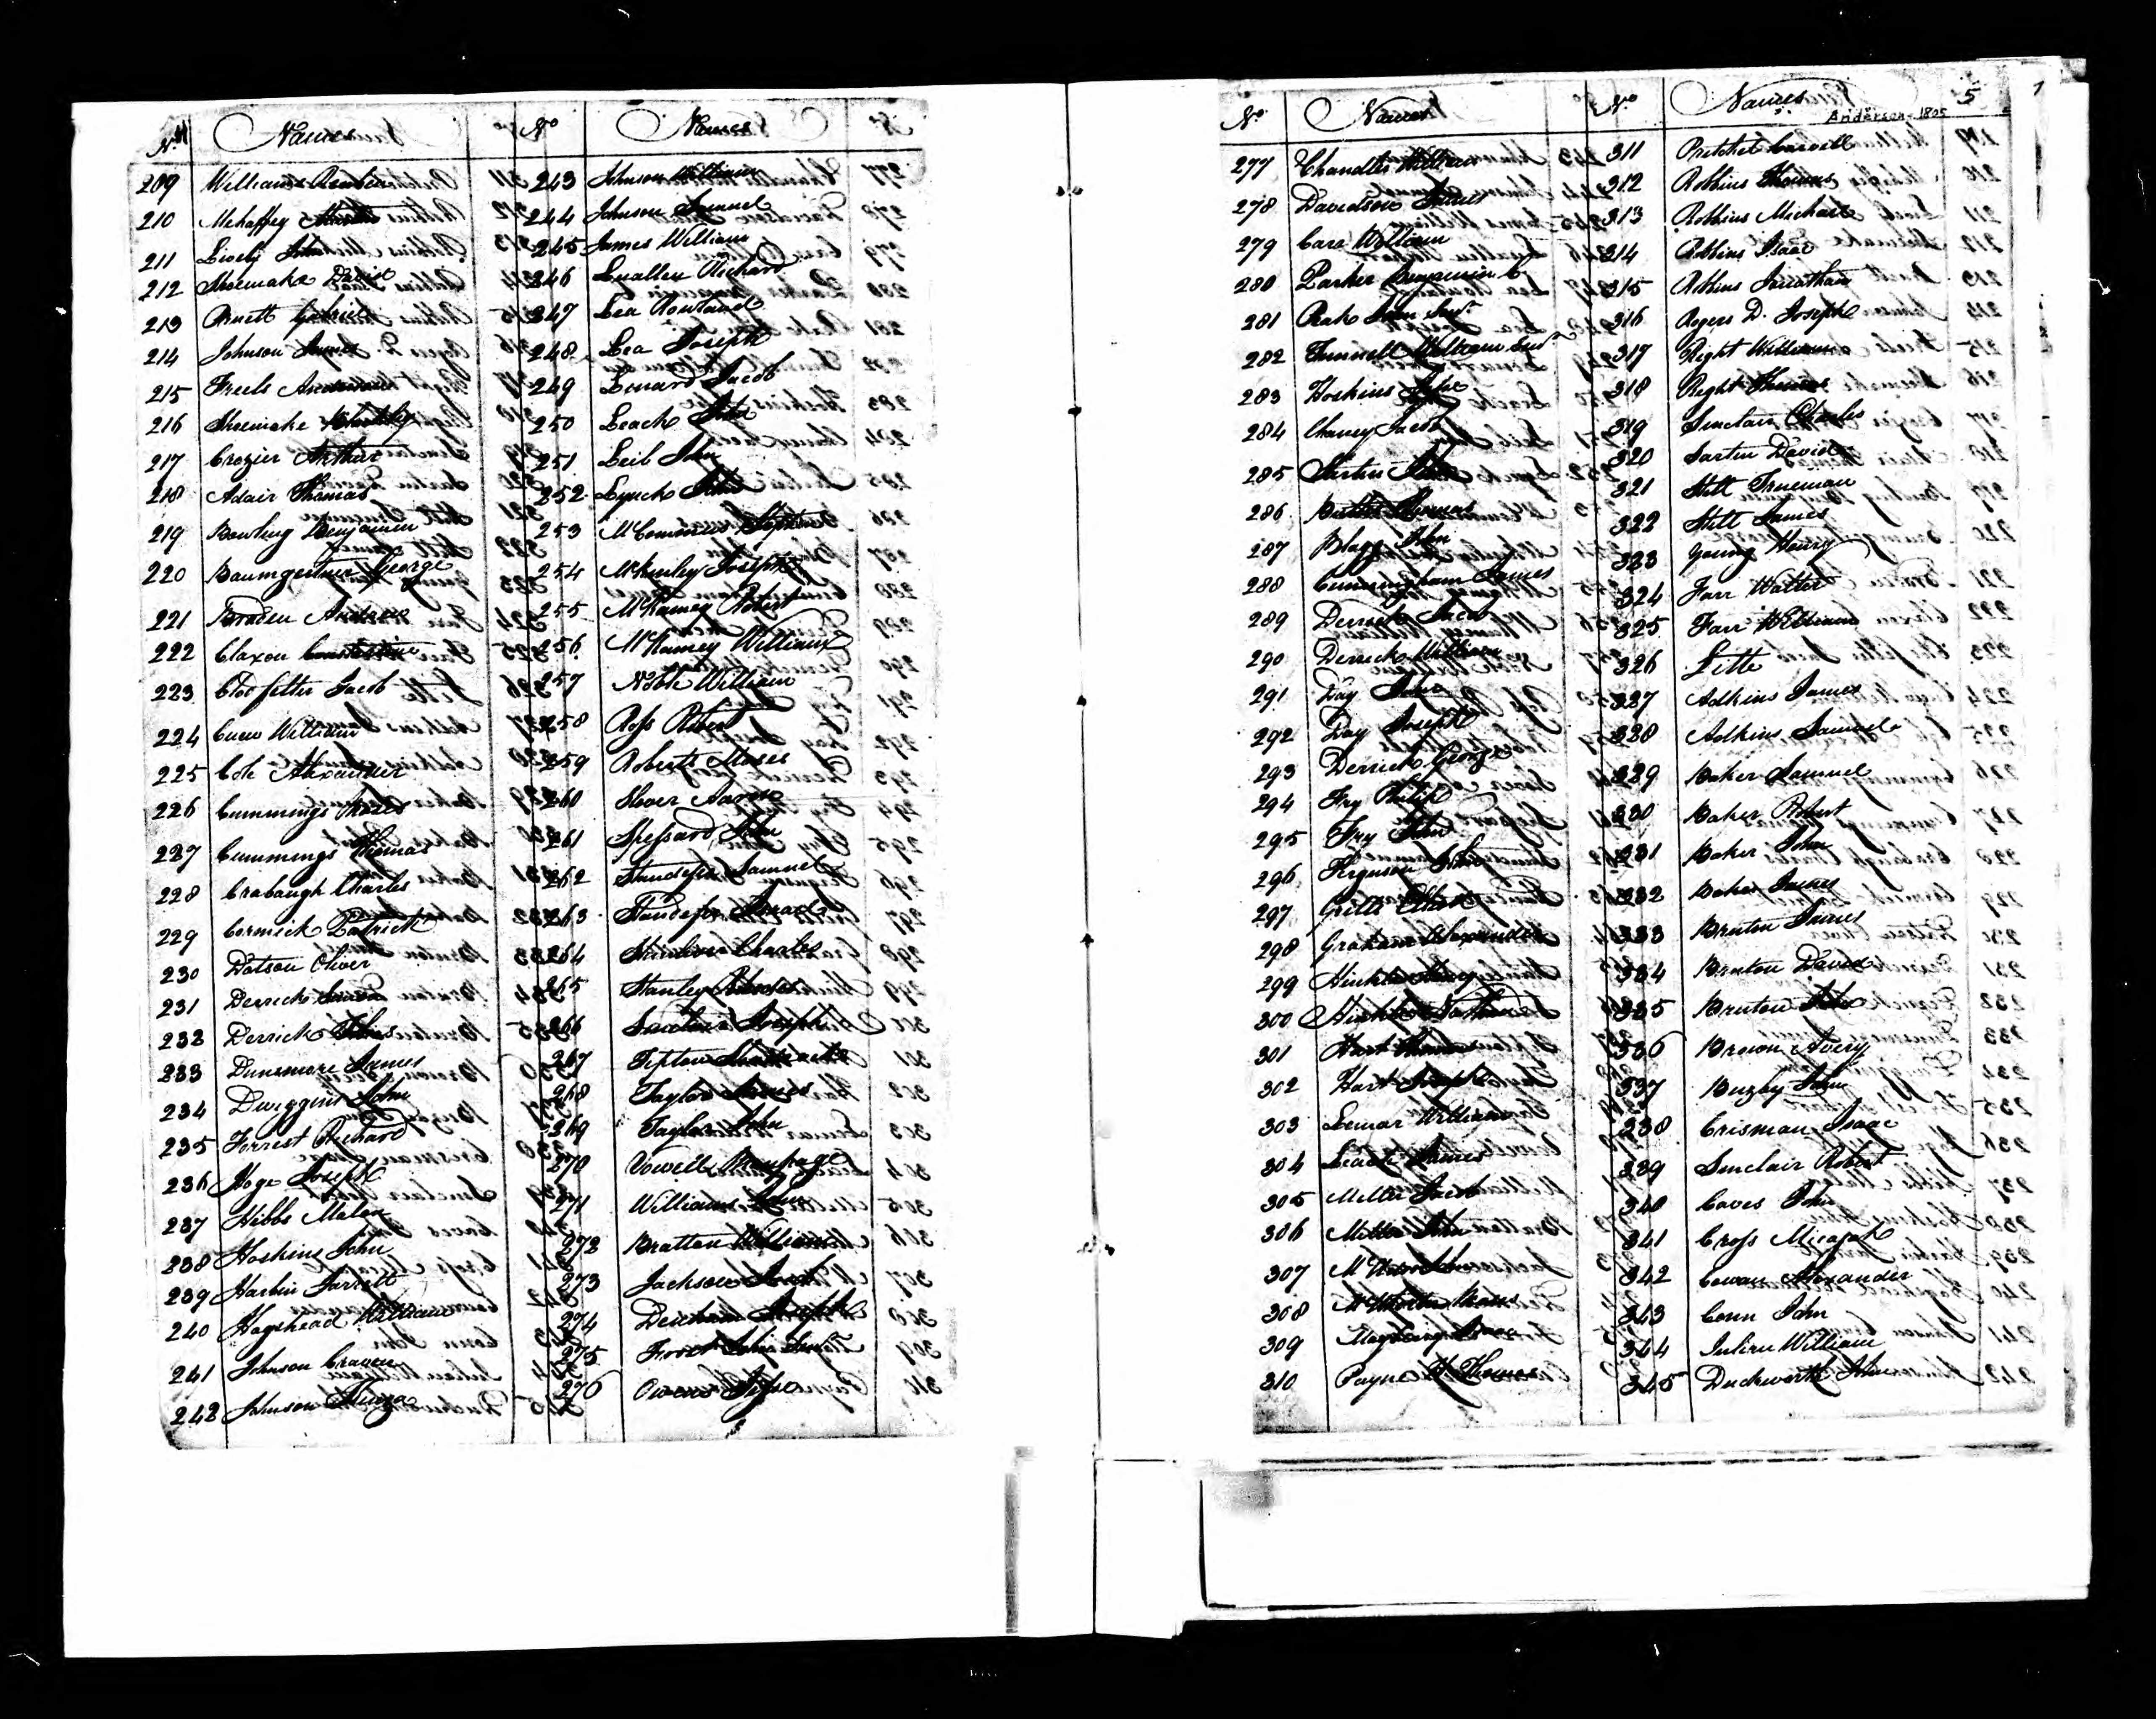 No. Names
209 Williams Reuben
210 Mehaffey
211 Lively John
212 Shoemake David
213 Pruett Gabriel
214 Johnson James
215 Freels
216 Shoemake
217 Crozier Arthur
218 Adair Thomas
219 Bowling Benjamin
220 Baumgertner George
221 Braden Andrew
222 Claxon Constantine
223 Clodfelter Jacob
224 Crew William
225 Cole Alexander
226 Cummings Moses
227 Cummings Thomas
228 Crabaugh Charles
229 Cormick Patrick
230 Dotson Oliver
231 Derrick Simon
232 Derrick
233 Dunsmore James
234 Dwiggins John
235 Forrest Richard
236 Hoge Joseph
237 Hibbs Malen
238 Hoskins John
239 Harbin Jarrett
240 Hagshead William
241 Johnson Craven
242 Johnson
No. Names
243 Johnson William
244 Johnson Samuel
245 James William
246 Luallen Richard
247 Lea Rowland
248 Lea Joseph
249 Lenard Jacob
250 Leach
251 Leib John
252 Lynch John
253
254 McKinley Joseph
255 McKamey Robert
256 McKamey William
257 Noble William
258 Ross Robert
259 Roberts Moses
260 Slover Aaron
261 Spessard John
262 Standefer Samuel
263 Standefer Israel
264 Charles
265 Stanley Rhodes
266 Joseph
267 Tipton Shadrach
268 Taylor James
269 Taylor John
270 Vowell
271 Williams John
272 Bratton William
273 Jackson
274 Denham Joseph
275 Frost John Senr.
276 Owens
No. Names
277 Chandler William
278 Davidson James
279 Carr William
280 Parker Benjamin C.
281 Peak John Senr.
282 Tunnell William Senr.
283 Hoskins
284 Chaney Jacob
285 Sartin John
286 Butler Thomas
287 Blagg John
288 Cunningham James
289 Derrick Jacob
290 Derrick William
291 Day John
292 Day Joseph
293 Derrick George
294 Fry Philip
295 Fry John
296 Ferguson John
297
298 Graham Alexander
299 Hinkle Henry
300 Hinkle Nathan
301 Hart Thomas
302 Hart Joseph
303 Lemar William
304 Leach James
305 Miller Jacob
306 Miller John
307
308
309
310 Payne H. Thomas
No. Names 5
Anderson - 1805
311 Pritchet Carvell
312 Robbins Thomas
313 Robbins Michael
314 Robbins Isaac
315 Robbins Jonathan
316 Rogers D. Joseph
317 Right William
318 Right Thomas
319 Sinclair Charles
320 Sartin David
321 Still Trueman
322 Still James
323 Young Henry
324 Farr Walter
325 Farr William
326
327 Adkins James
328 Adkins Samuel
329 Baker Samuel
330 Baker Robert
331 Baker John
332 Baker James
333 Bruton James
334 Bruton David
335 Bruton John
336 Brown Avery
337 Buzby John
338 Crisman Isaac
339 Sinclair Robert
340 Caves John
341 Cross Micajah
342 Cowan Alexander
343 Conn John
344 Julien William
345 Duckworth John